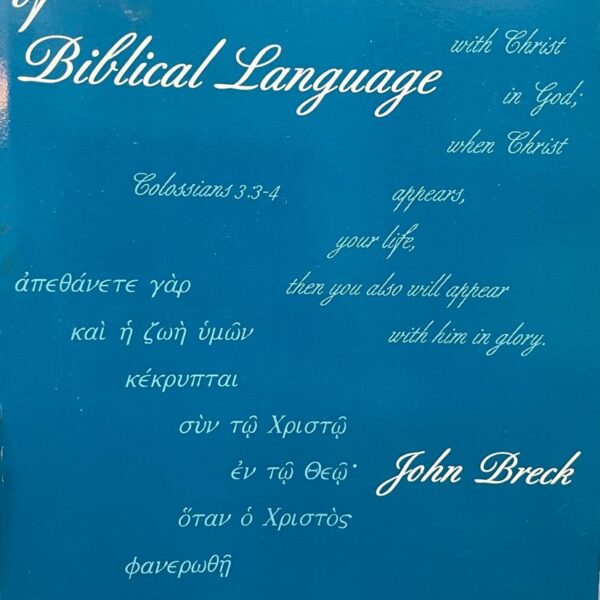 of
Biblical Language
with Christ
in God;
when Christ
Colossians 3.3-4
appears,
your life,
then you also will appear
with him in glory.
ἀπεθάνετε γὰρ
καὶ ἡ ζωὴ ὑμῶν
κέκρυπται
σὺν τῷ Χριστῷ
ἐν τῷ Θεῷ·
ὅταν ὁ Χριστὸς
φανερωθῇ
John Breck